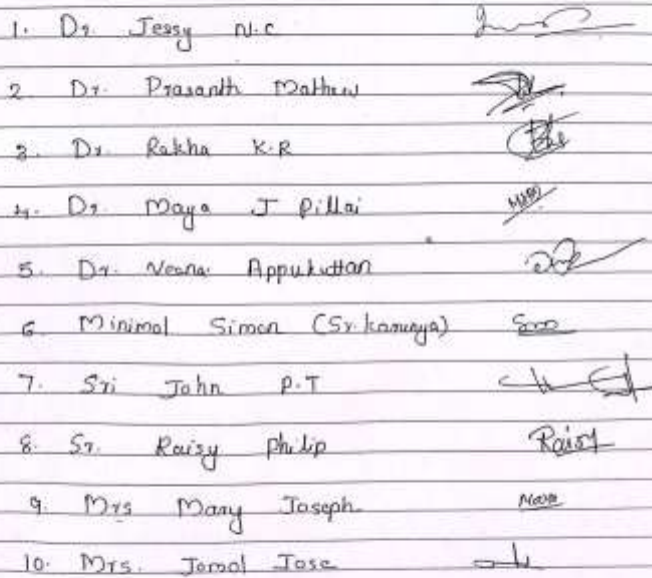 1. Dr. Jessy N.C
2. Dr. Prasanth Mathew
3. Dr. Rakha K.R
4. Dr. Maya J Pillai
5. Dr. Veena Appukuttan
6 Minimol Simon (Sr. karunya)
7. Sri John P.T
8. Sr. Raisy Philip Raisy
9. Mrs Mary Joseph
10. Mrs. Jomol Jose